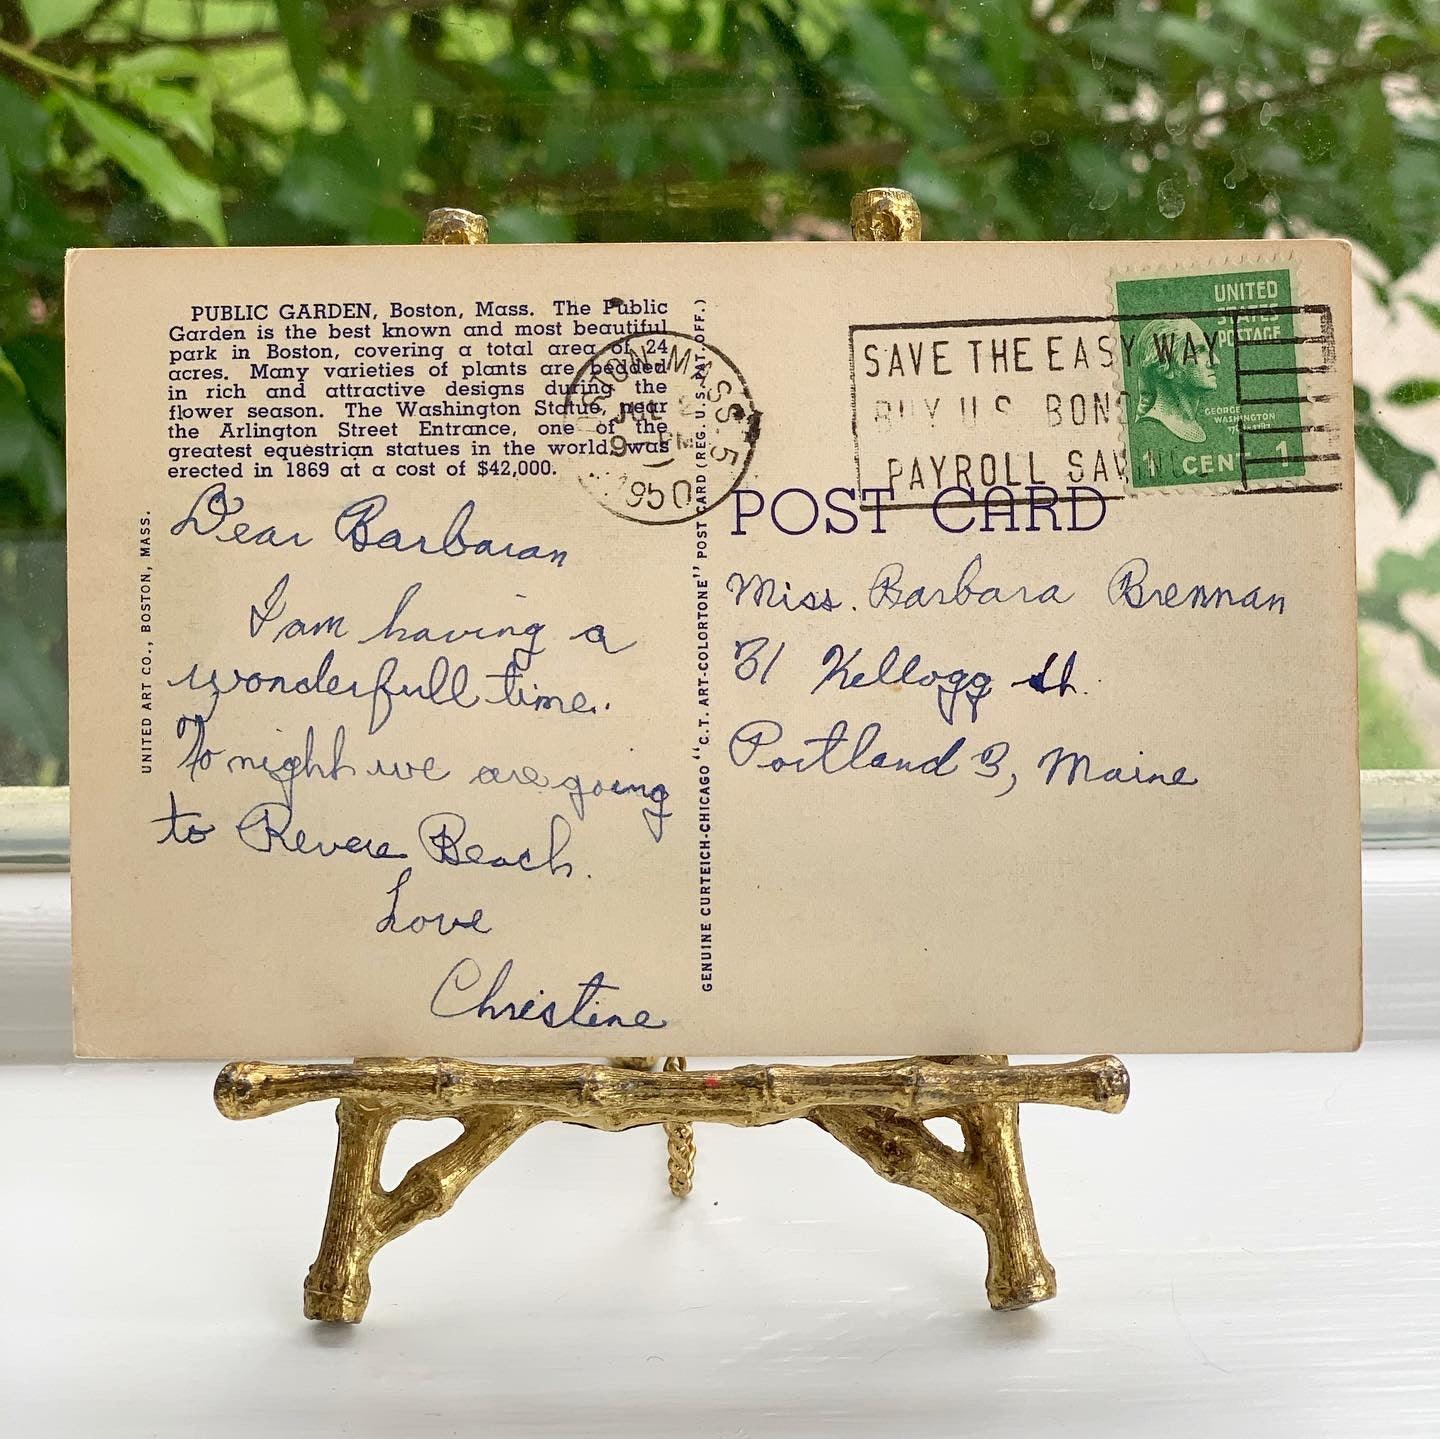 PUBLIC GARDEN, Boston, Mass. The Public
Garden is the best known and most beautiful
park in Boston, covering a total area of 24
acres. Many varieties of plants are bedded
in rich and attractive designs during the
flower season. The Washington Statue, near
the Arlington Street Entrance, one of the
greatest equestrian statues in the world, was
erected in 1869 at a cost of $42,000.
UNITED ART CO., BOSTON, MASS.
Dear Barbaran
I am having a
wonderfull time.
To night we are going
to Revere Beach.
Love
Christine
GENUINE CURTEICH-CHICAGO "C.T. ART-COLORTONE" POST CARD (REG. U.S. PAT. OFF.)
BOSTON, MASS. 5
JUL
9 - PM
1950
SAVE THE EASY WAY
BUY U.S. BONDS
PAYROLL SAVINGS
UNITED
STATES
POSTAGE
GEORGE
WASHINGTON
1 CENT 1
POST CARD
Miss. Barbara Brennan
31 Kellogg St.
Portland 3, Maine